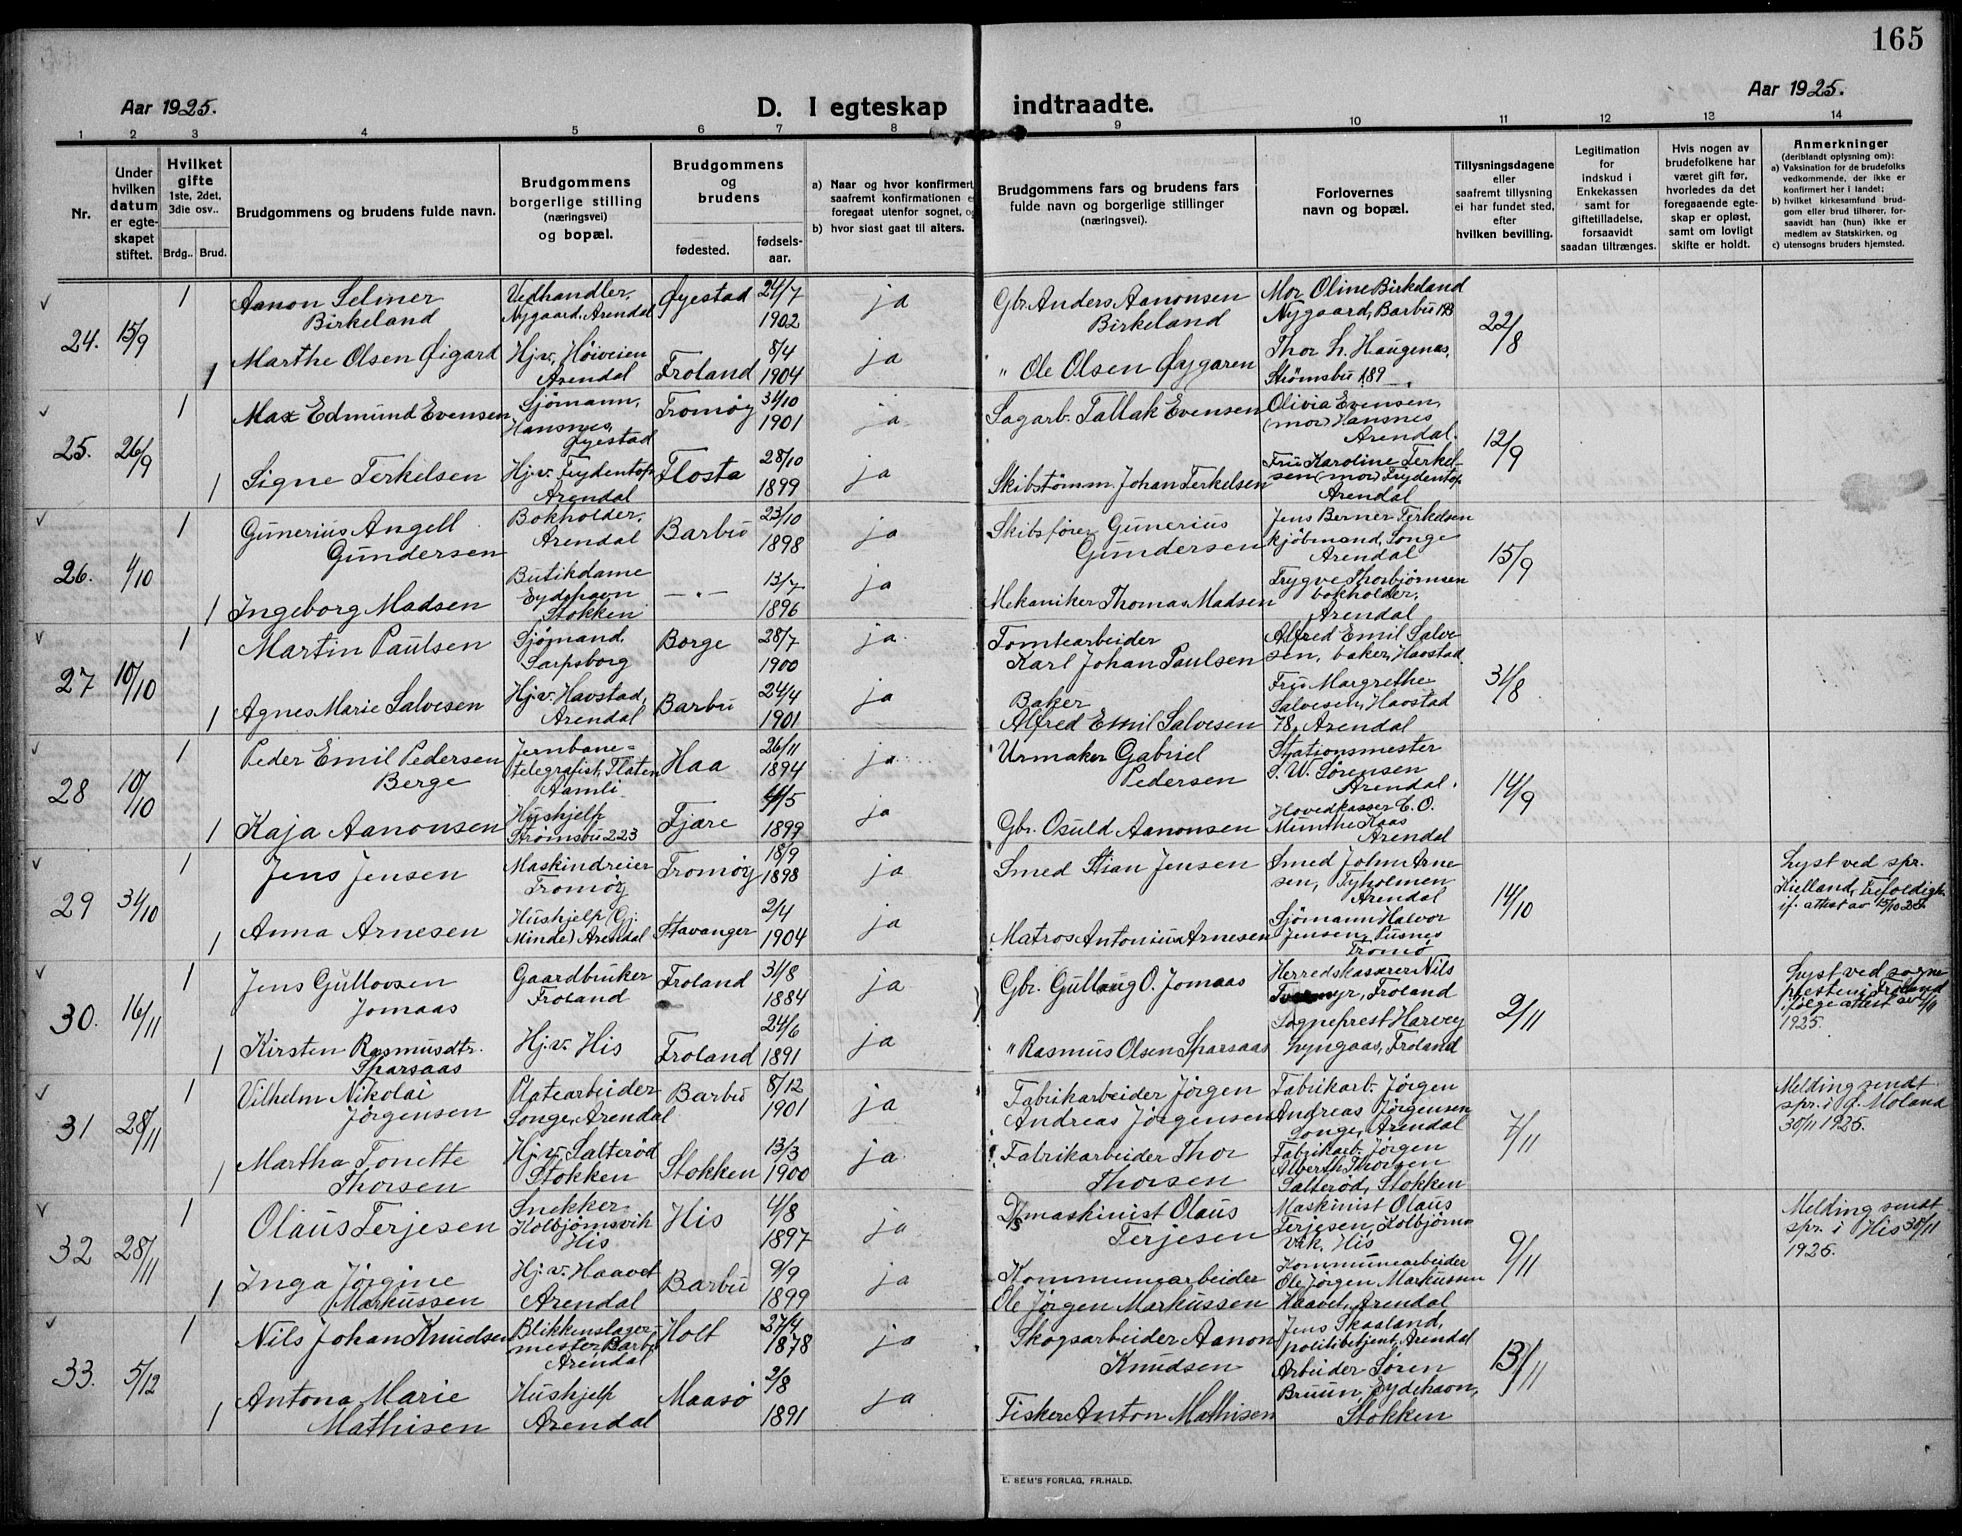 165
Aar 1925.
D. I egteskap indtraadte.
Aar 1925.
1 2 3 4 5 6 7 8 9 10 11 12 13 14
Nr.
Under
hvilken
datum
er egte-
skapet
stiftet.
Hvilket
gifte
1ste, 2det,
3die osv..
Brdg.. Brud.
Brudgommens og brudens fulde navn.
Brudgommens
borgerlige stilling
(næringsvei)
og bopæl.
Brudgommens
og
brudens
fødested.
fødsels-
aar.
a) Naar og hvor konfirmert,
saafremt konfirmationen
foregaat utenfor sognet,
b) hvor sidst gaat til alters.
Brudgommens fars og brudens fars
fulde navn og borgerlige stillinger
(næringsvei).
Forlovernes
navn og bopæl.
Tillysningsdagene
eller
saafremt tillysning
ei har fundet sted,
efter
hvilken bevilling.
Legitimation
for
indskud i
Enkekassen
samt for
giftetilladelse,
forsaavidt
saadan tiltrænges.
Hvis nogen av
brudefolkene har
været gift før,
hvorledes da det
foregaaende egte-
skap er opløst,
samt om lovligt
skifte er holdt.
Anmerkninger
(deriblandt oplysning om):
a) Vaksination for de brudefolks
vedkommende, der ikke er
konfirmert her i landet;
b) hvilket kirkesamfund brud-
gom eller brud tilhører, for-
saavidt han (hun) ikke er
medlem av Statskirken, og
c) utensogns bruders hjemsted.
24. 15/9
1
Aanon Selmer
Birkeland
Vedhandler,
Nygaard, Arendal
Øyestad
24/7
1902
ja
Gbr. Anders Aanonsen
Birkeland
Mor Oline Birkeland
Nygaard, Barbu
22/8
1
Marthe Olsen Øigard
Hj.v. Høiveien
Arendal
Froland
8/4
1904
ja
" Ole Olsen Øygaren
Thor Haugenas,
Strømsbu 189
25. 26/9
1
Max Edmund Evensen
Sjømann,
Hansnes,
Øyestad
Tromøy
31/10
1901
ja
Sagarb. Tallak Evensen
Olivia Evensen,
(mor) Hansnes
Arendal.
12/9
1
Signe Terkelsen
Hj.v. Frydentop
Arendal
Flosta
28/10
1899
ja
Skibstømm. Johan Terkelsen
Fru Karoline Terkel-
sen (mor) Frydentop
Arendal
26. 1/10
1
Gunerius Angell
Gundersen
Bokholder,
Arendal
Barbu
23/10
1898
ja
Skibsfører Gunerius
Gundersen
Jens Berner Terkelsen
kjøbmand, Songe
Arendal
15/9
1
Ingeborg Madsen
Butikdame
Eydehavn
Stokken
— " —
13/7
1896
ja
Mekaniker Thomas Madsen
Trygve Thorbjørnsen
bokholder,
Arendal
27 10/10
1
Martin Paulsen
Sjømand,
Sarpsborg
Borge
28/7
1900
ja
Tomtearbeider
Karl Johan Paulsen
Alfred Emil Salve
sen, baker, Havstad
31/8
1
Agnes Marie Salvesen
Hj.v. Havstad,
Arendal
Barbu
24/4
1901
ja
Baker
Alfred Emil Salvesen
Fru Margrethe
Salvesen, Havstad
78, Arendal
28 10/10
1
Peder Emil Pedersen
Berge
Jernbane=
telegrafist, Flaten
Aamli
Haa
26/11
1894
ja
Urmaker Gabriel
Pedersen
Stationsmester
S. W. Sørensen
Arendal.
14/9
1
Kaja Aanonsen
Hushjelp
Strømsbu 223
Fjære
4/5
1899
ja
Gbr. Osuld Aanonsen
Hovedkasser C. O.
Munthe Kaas
Arendal
29 31/10
1
Jens Jensen
Maskindreier
Tromøy
Tromøy
18/9
1898
ja
Smed Stian Jensen
Smed John Arne
sen, Tyholmen
Arendal
14/10
Lyst ved spr.
Kielland, Trefoldigh.
if. attest av 15/10 25.
1
Anna Arnesen
Hushjelp (Gj.
Minde) Arendal
Stavanger
2/4
1904
ja
Matros Antonius Arnesen
Sjømann Halvor
Jensen, Pusnes
Tromø
30. 16/11
1
Jens Gullovsen
Jomaas
Gaardbruker
Froland
Froland
31/8
1884
ja
Gbr. Gullaug O. Jomaas
Herredskasserer Nils
Froland
2/11
Lyst ved sogne
presten i Froland
ifølge attest av
1925.
1
Kirsten Rasmusdtr.
Sparsaas
Hj.v. His
Froland
24/6
1891
ja
" Rasmus Olsen Sparsaas
Sogneprest Harvey
Lyngaas, Froland
31 28/11
1
Vilhelm Nikolai
Jørgensen
Platearbeider
Songe, Arendal
Barbu
8/12
1901
ja
Fabrikarbeider Jørgen
Andreas Jørgensen
Fabrikarb. Jørgen
Andreas Jørgensen
Songe, Arendal
7/11
Melding sendt
spr. i Ø. Moland
30/11 1925.
1
Martha Tonette
Thorsen
Hj.v. Salterød
Stokken
Stokken
13/3
1900
ja
Fabrikarbeider Thor
Thorsen
Fabrikarb. Jørgen
Alberth Thorsen
Salterød, Stokken
32 28/11
1
Olaus Terjesen
Snekker
Kolbjørnsvik
His
His
4/8
1897
ja
D/s maskinist Olaus
Terjesen
Maskinist Olaus
Terjesen, Kolbjørns
vik, His
9/11
Melding sendt
spr. i His 30/11
1925.
1
Inga Jørgine
Markussen
Hj.v. Haavet
Arendal
Barbu
9/9
1899
ja
Kommunearbeider
Ole Jørgen Markussen
Kommunearbeider
Ole Jørgen Markussen
Haavet, Arendal
33. 5/12
1
Nils Johan Knudsen
Blikkenslager-
mester, Barbu
Arendal
Holt
27/4
1878
ja
Skogsarbeider Aanon
Knudsen
Jens Skaaland,
politibetjent, Arendal
13/11
1
Antona Marie
Mathisen
Hushjelp
Arendal
Maasø
2/8
1891
ja
Fisker Anton Mathisen
Arbeider Søren
Bruun, Eydehavn,
Stokken
E. SEM'S FORLAG, FR.HALD.